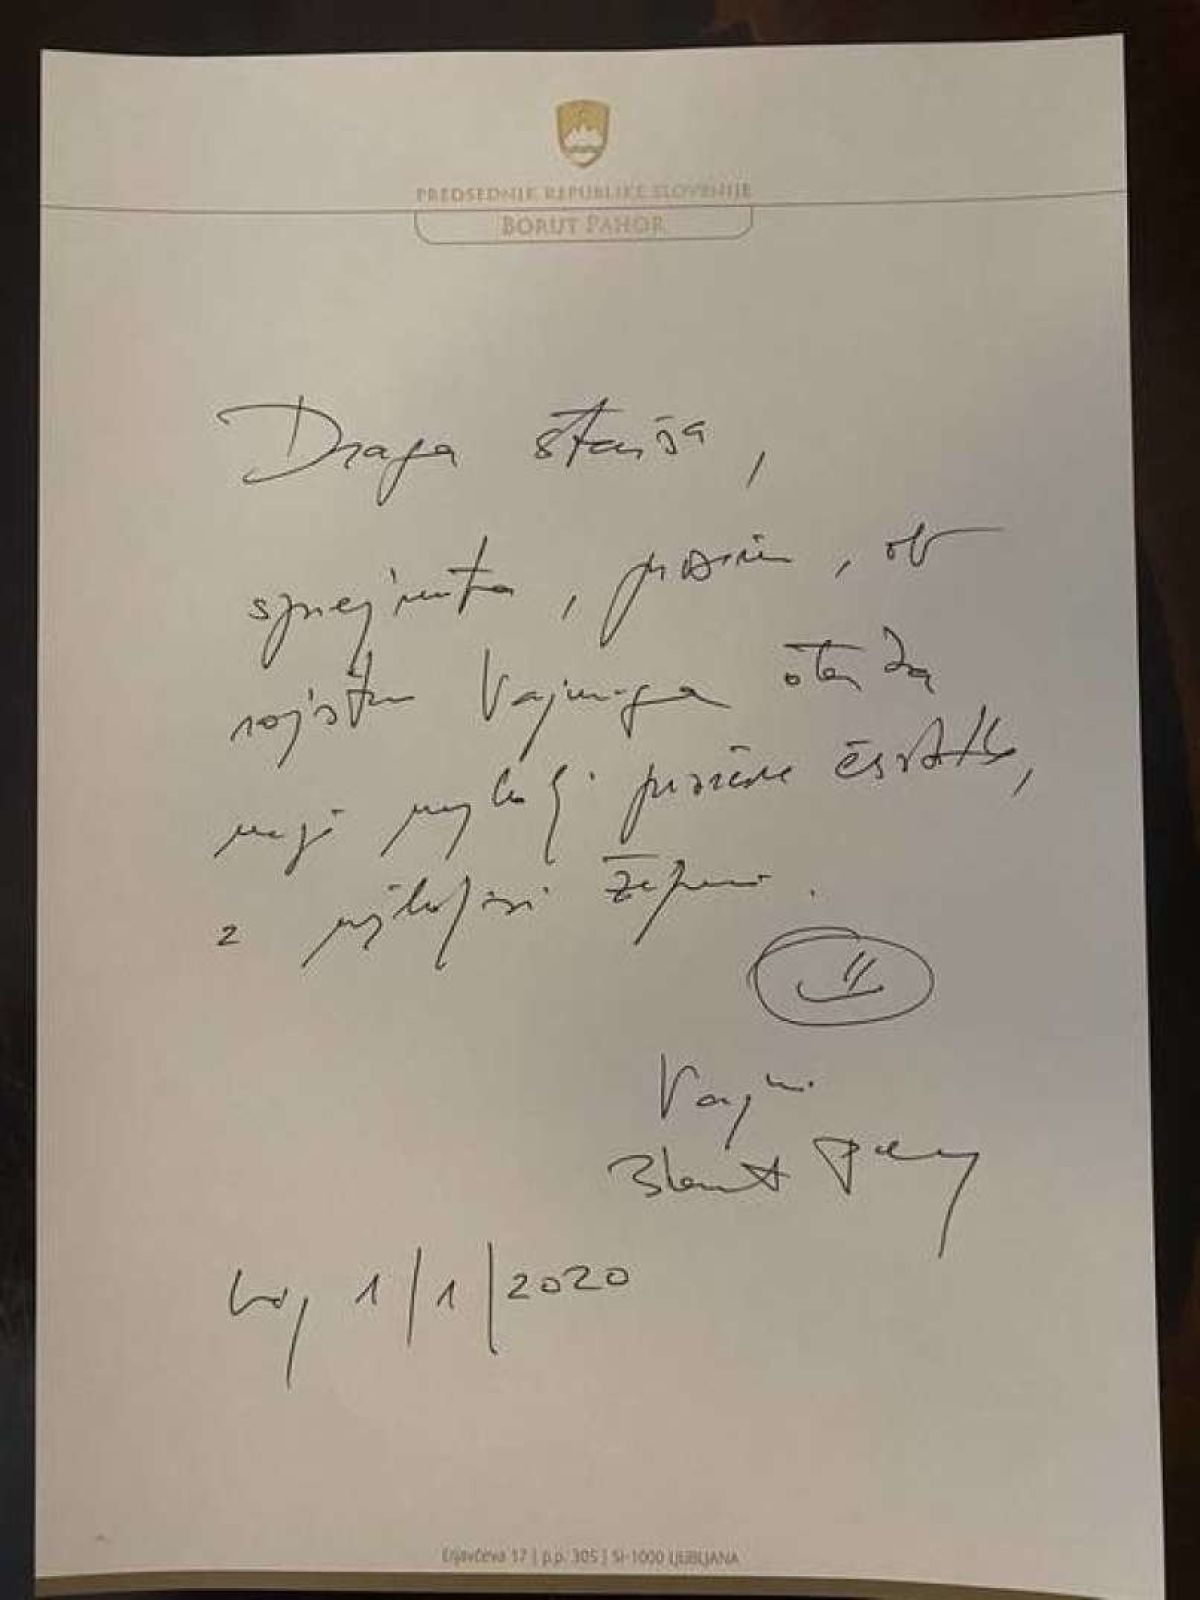 PREDSEDNIK REPUBLIKE SLOVENIJE
BORUT PAHOR
Draga starša,
sprejmita, prosim, ob
rojstvu Vajinega otročka
moje najbolj prisrčne čestitke,
z najboljšimi željami.
Vajin
Borut Pahor
Lj, 1/1/2020
Erjavčeva 17 | p.p. 305 | SI-1000 LJUBLJANA